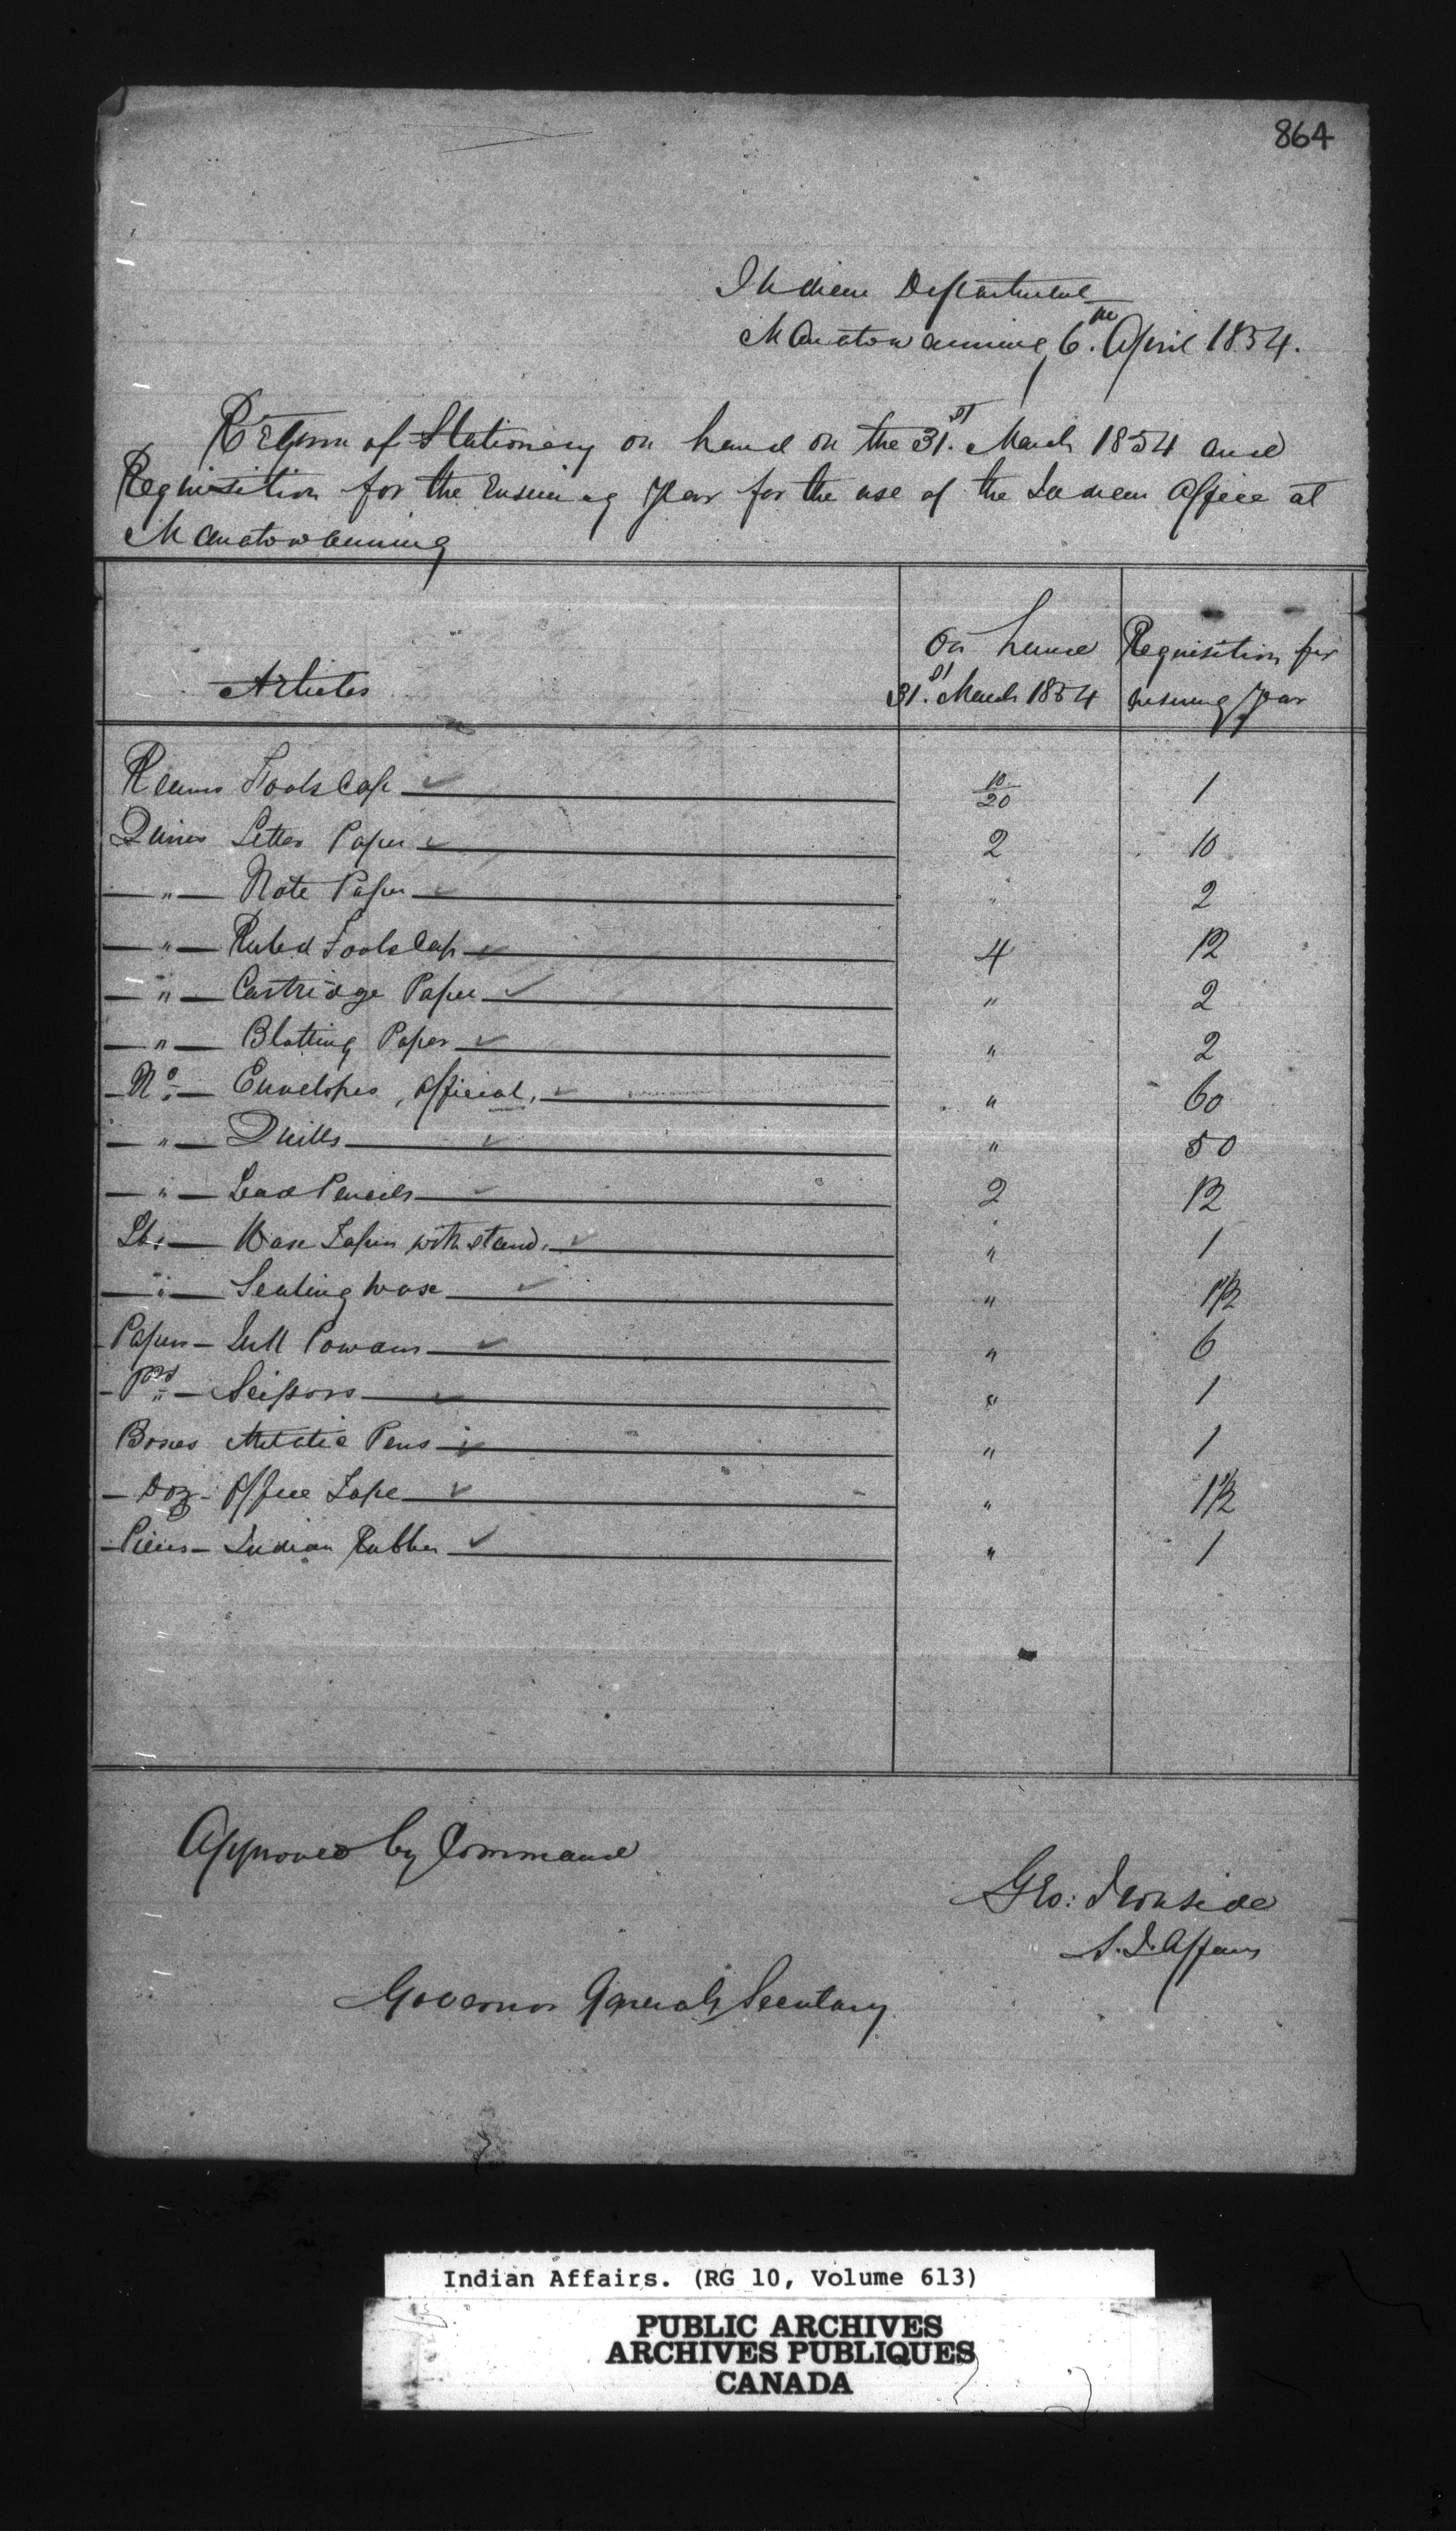 864
Indian Department
Manatowaning 6.th April 1854.
Return of Stationery on hand on the 31.st March 1854 and
Requisition for the Ensuing Year for the use of the Indian Office at
Manatowaning
Articles
On hand 31.st March 1854
Requisition for ensuing Year
Reams Foolscap 10/20 1
Quires Letter Paper 2 10
" Note Paper " 2
" Ruled Foolscap 4 12
" Cartridge Paper " 2
" Blotting Paper " 2
No. Envelopes, Official, " 60
" Quills " 50
" Lead Pencils 2 12
Lbs Wax Taper with stand. " 1
" Sealing Wax " 1 1/2
Papers Ink Powder " 6
Prs Scissors " 1
Boxes Metalic Pens " 1
Doz Office Tape " 1 1/2
Pieces Indian Rubber " 1
Approved by Command
Geo: Ironside
S. I. Affairs
Governor General's Secretary
Indian Affairs. (RG 10, Volume 613)
PUBLIC ARCHIVES
ARCHIVES PUBLIQUES
CANADA